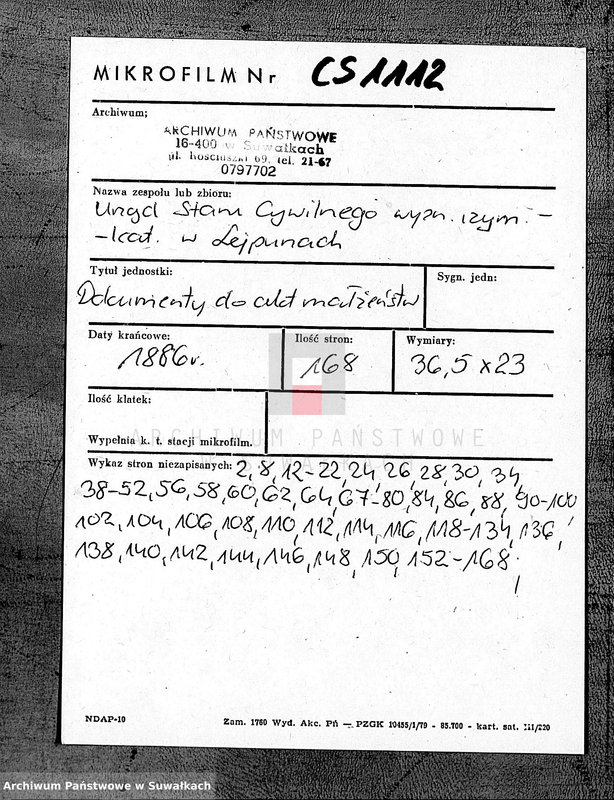 MIKROFILM Nr CS1112
Archiwum:
ARCHIWUM PAŃSTWOWE
16-400 w Suwałkach
ul. Kościuszki 69, tel. 21-67
0797702
Nazwa zespołu lub zbioru:
Urząd Stanu Cywilnego wyzn. rzym.-
-kat. w Lejpunach
Tytuł jednostki:
Sygn. jedn:
Dokumenty do akt małżeństw
Daty krańcowe:
1886r.
Ilość stron:
168
Wymiary:
36,5 x 23
Ilość klatek:
Wypełnia k. t. stacji mikrofilm.
ARCHIWUM PAŃSTWOWE
W SUWAŁKACH
Wykaz stron niezapisanych: 2, 8, 12-22, 24, 26, 28, 30, 34,
38-52, 56, 58, 60, 62, 64, 67-80, 84, 86, 88, 90-100,
102, 104, 106, 108, 110, 112, 114, 116, 118-134, 136,
138, 140, 142, 144, 146, 148, 150, 152-168.
NDAP-10
Zam. 1760 Wyd. Akc. Pń — PZGK 10455/1/79 - 85.700 - kart. sat. III/220
Archiwum Państwowe w Suwałkach